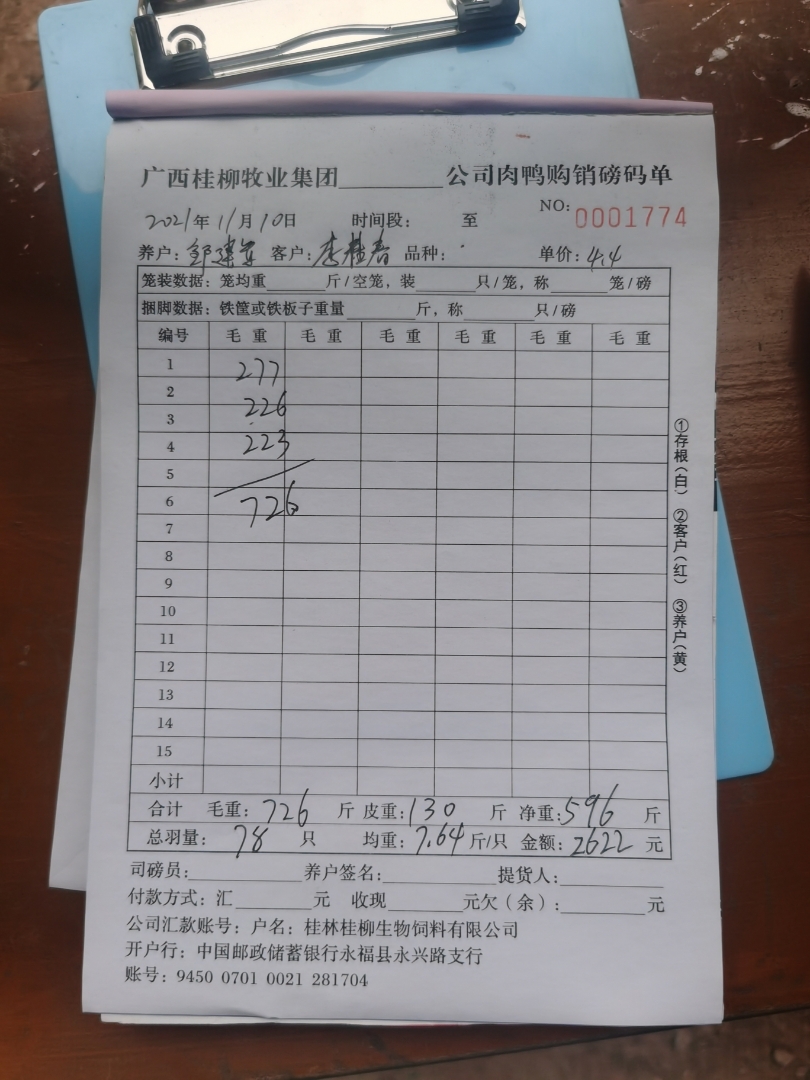 广西桂柳牧业集团________公司肉鸭购销磅码单
NO: 0001774
2021年 11月 10日 时间段: 至
养户: 邹建军 客户: 李桂春 品种: 单价: 4.4
笼装数据: 笼均重______斤/空笼, 装______只/笼, 称______笼/磅
捆脚数据: 铁筐或铁板子重量________斤, 称________只/磅
编号 毛 重 毛 重 毛 重 毛 重 毛 重 毛 重
1 277
2 226
3
4 223
5
6 726
7
8
9
10
11
12
13
14
15
小计
合计 毛重: 726 斤 皮重: 130 斤 净重: 596 斤
总羽量: 78 只 均重: 7.64 斤/只 金额: 2622 元
司磅员:__________ 养户签名:__________ 提货人:__________
付款方式: 汇________元 收现________元欠(余):________元
公司汇款账号: 户名: 桂林桂柳生物饲料有限公司
开户行: 中国邮政储蓄银行永福县永兴路支行
账号: 9450 0701 0021 281704
①存根(白) ②客户(红) ③养户(黄)